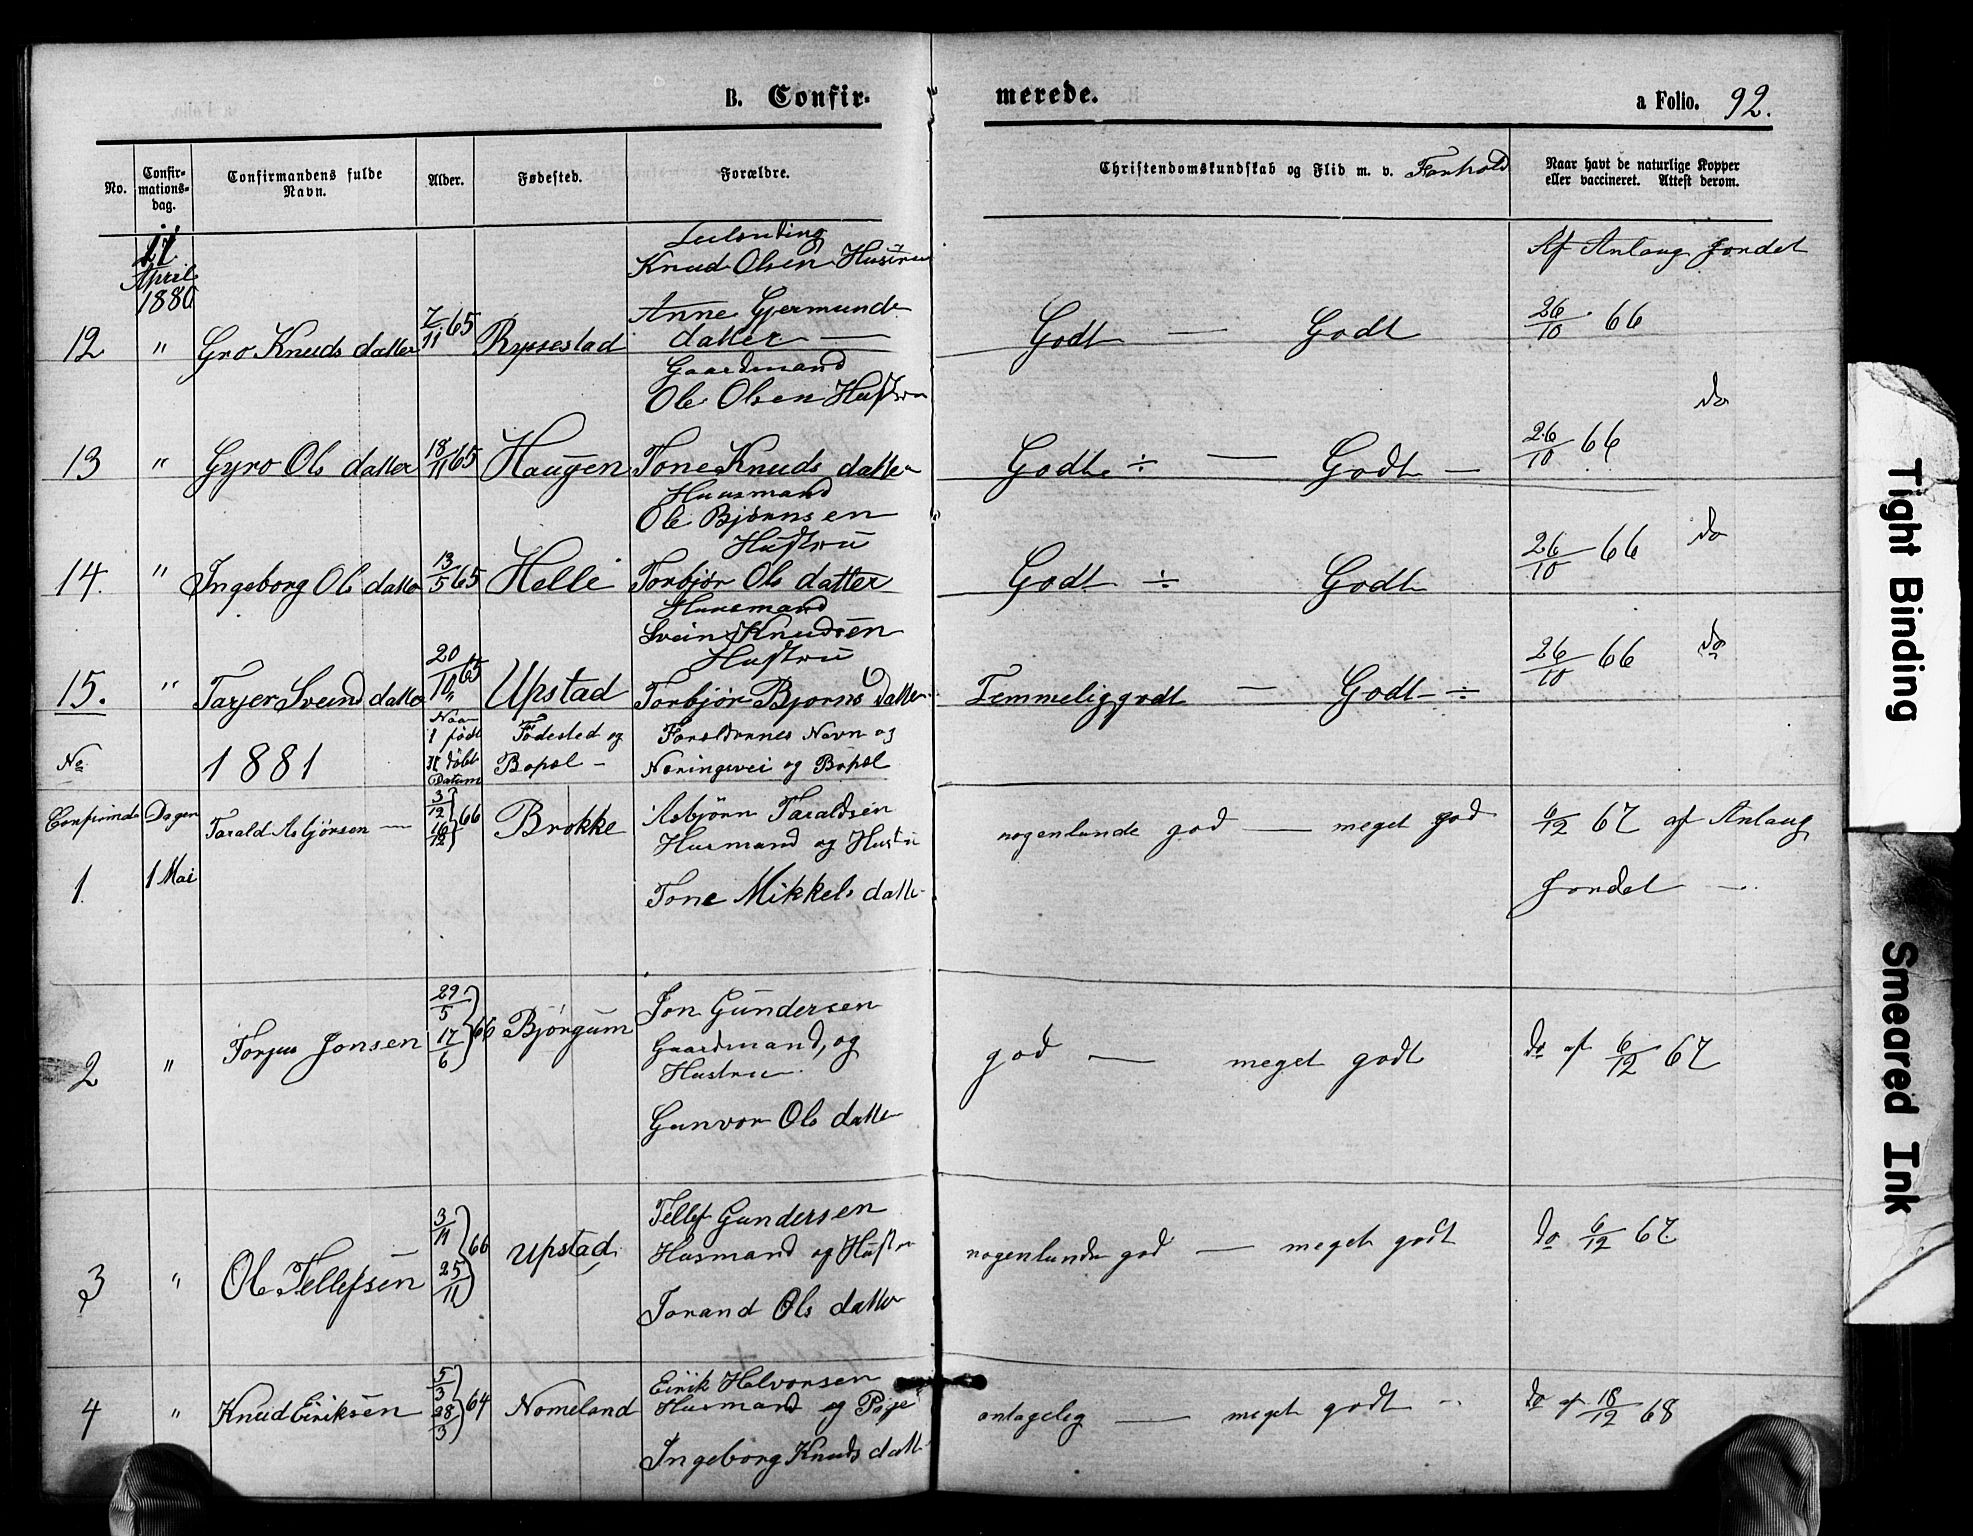 B. Confir-
merede.
a Folio. 92.
No.
Confir-
mations-
dag.
Confirmandens fulde
Navn.
Alder.
Fødested.
Forældre.
Christendomskundskab og Flid m. v. Forhold
Naar havt de naturlige Kopper
eller vaccineret. Attest derom.
11
April
1880
Knud Olsen Hustru
Af Anlaug Jordet
12 " Gro Knuds datter 7/11 65 Ryssestad
Anne Gjermunds
datter —
Godt — Godt
26/10 66
Gaardmand
Ole Olsen Hustru
do
13 " Gyro Ols datter 18/11 65 Haugen Tone Knuds datter
Godt ÷ — Godt —
26/10 66
Huusmand
Ole Bjørnsen
Hustru
do
14. " Ingeborg Ols datter 13/5 65 Helle Torbjør Ols datter
Godt ÷ Godt
26/10 66
Huusmand
Svein Knudsen
Hustru
do
15. " Tarjer Sveins datter 20/10 65 Upstad Torbjør Bjorns Datter
Temmelig godt — Godt ÷
26/10 66
No
1881
Naar
født
døbt
Datum
Fødested og
Bopæl -
Forældrenes Navn og
Næringsvei og Bopæl
Confirmds Dagen
1. 1 Mai
Tarald Asbjørsen — 3/12 16/12 } 66 Brokke
Asbjörn Taraldsen
Husmand og Hustru
Tone Mikkels datter
nogenlunde god — meget god
6/12 67 af Anlaug
Jordet —
2 " Torjus Jonsen 29/5 17/6 } 66 Bjørgum
Jon Gundersen
Gaardmand, og
Hustru
Gunvor Ols datter
god — meget godt
do af 6/12 67
3 " Ole Tellefsen 3/11 25/11 } 66 Upstad
Tellef Gundersen
Husmand og Hustru
Torand Ols datter
nogenlunde god — meget godt
do 6/12 67
4 " Knud Eiriksen 5/3 28/3 } 64 Nomeland
Eirik Halvorsen
Husmand og Pige
Ingeborg Knuds datter
antagelig — meget godt —
do af 18/12 68
Tight Binding
Smeared Ink